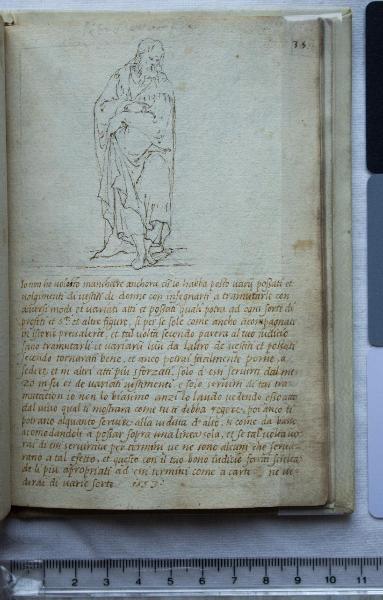 35
Io non ho voluto manchare anchora ch'io habbia posto varij possati et
volgimenti di vestiti de donne con insegnarti a tramutarle con
diversi modi et variati atti et possati quali potra ad ogni sorti di
profeti et S.ti et altre figure, si per se sole come ancho acompagnate
in istorie prevalerte, et tal volta secondo parera al tuo iudicio
sano tramutarli et variarli lun da laltro de vestiti et possati
secondo tornarati bene, et anco potrai facilmente porne a
sedere, et in altri atti piu sforzati, solo d'essi servirti dal me
zo in su et de variati vestimenti, e sole servirti di tal tra
mutation io non lo biasimo anzi lo laudo
dal vivo qual ti mostrara come tu ti debba regere, poi anco ti
potrano alquanto servire alla veduta d'alto, si come da basso
acomodandoli a possar sopra una linea sola, et se tal volta vo
rai di essi servirti per termini ve ne sono alcuni che servi
rano a tal effetto, et questo con il tuo bono iudicio farai scielta
de li piu apropriati ad essi termini come a carte ne ve
durai di varie sorti
0 1 2 3 4 5 6 7 8 9 10 11